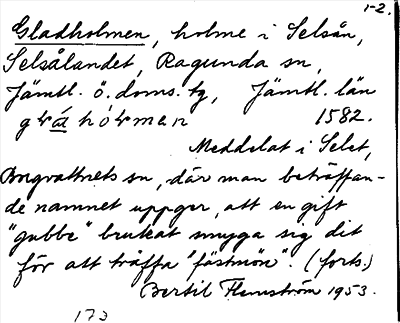 1-2.
Gladholmen, holme i Selsån,
Selsålandet, Ragunda sn,
Jämtl. ö. doms. tg, Jämtl. län
1582.
Meddelat i Selet,
sn, där man beträffan-
de namnet uppger, att en gift
"gubbe" brukat smyga sig dit
för att träffa "fästmön". (forts.)
Bertil Flemström 1953.
173